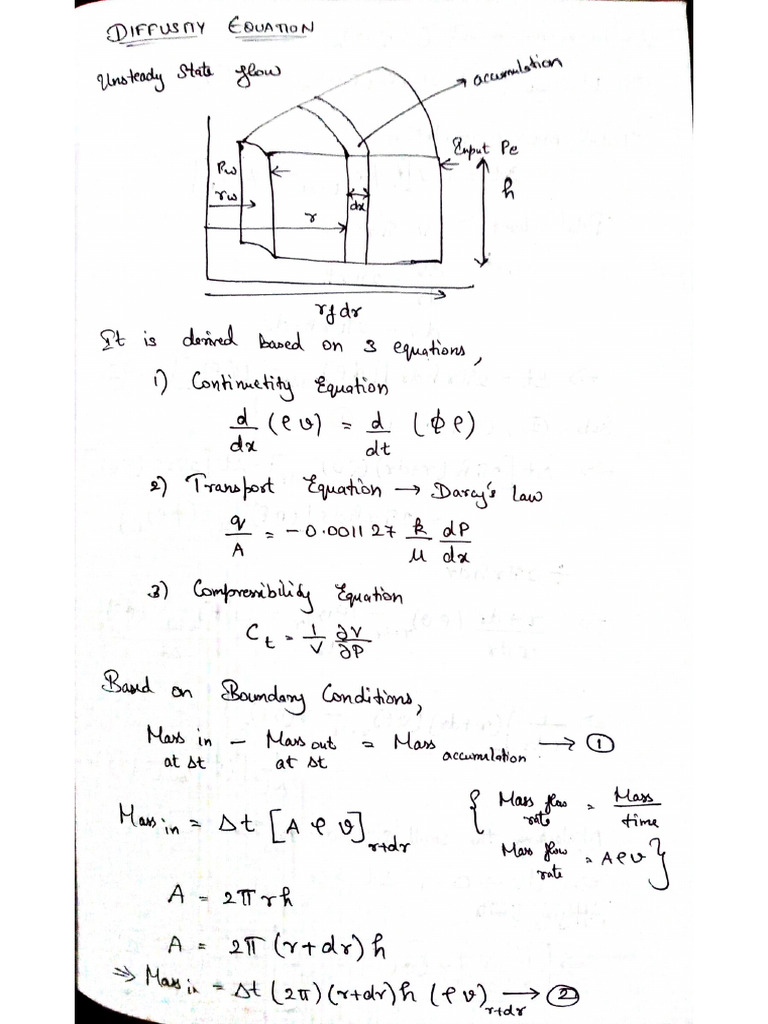 DIFFUSITY EQUATION
Unsteady State flow
accumulation
Input Pe
Pw
h
rw
dx
r
rf dr
It is derived based on 3 equations,
1) Continuetity Equation
d/dx (ρv) = d/dt (ϕρ)
2) Transport Equation → Darcy's Law
q/A = -0.001127 k/μ dP/dx
3) Compressibility Equation
Ct = 1/V ∂V/∂P
Based on Boundary Conditions,
Mass in at Δt - Mass out at Δt = Mass accumulation → ①
Mass in = Δt [A ρ v] r+dr
{ Mass flow rate = Mass/time
Mass flow rate = Aρv }
A = 2πrh
A = 2π(r+dr)h
⇒ Mass in = Δt (2π)(r+dr)h (ρv) r+dr → ②